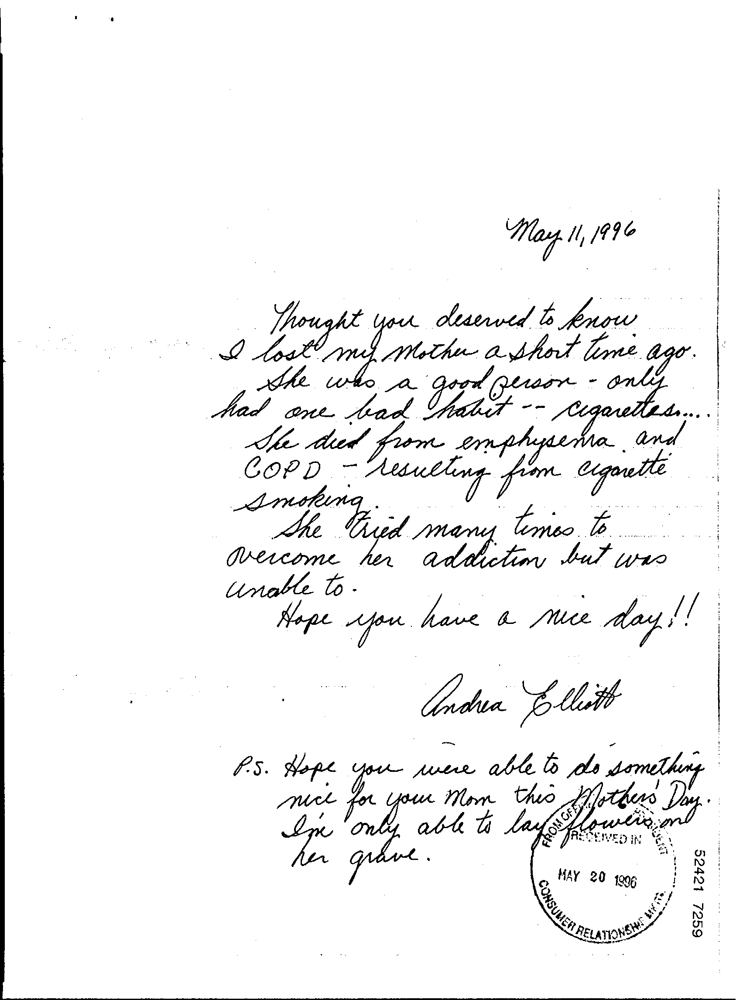 May 11, 1996
Thought you deserved to know
I lost my Mother a short time ago.
She was a good person - only
had one bad habit -- cigarettes.....
She died from emphysema and
COPD - resulting from cigarette
smoking.
She tried many times to
overcome her addiction but was
unable to.
Hope you have a nice day!!
Andrea Elliott
P.S. Hope you were able to do something
nice for your Mom this Mother's Day.
I'm only able to lay flowers on
her grave.
FROM OFFICE PRESIDENT
RECEIVED IN
MAY 20 1996
CONSUMER RELATIONSHIP
52421 7259